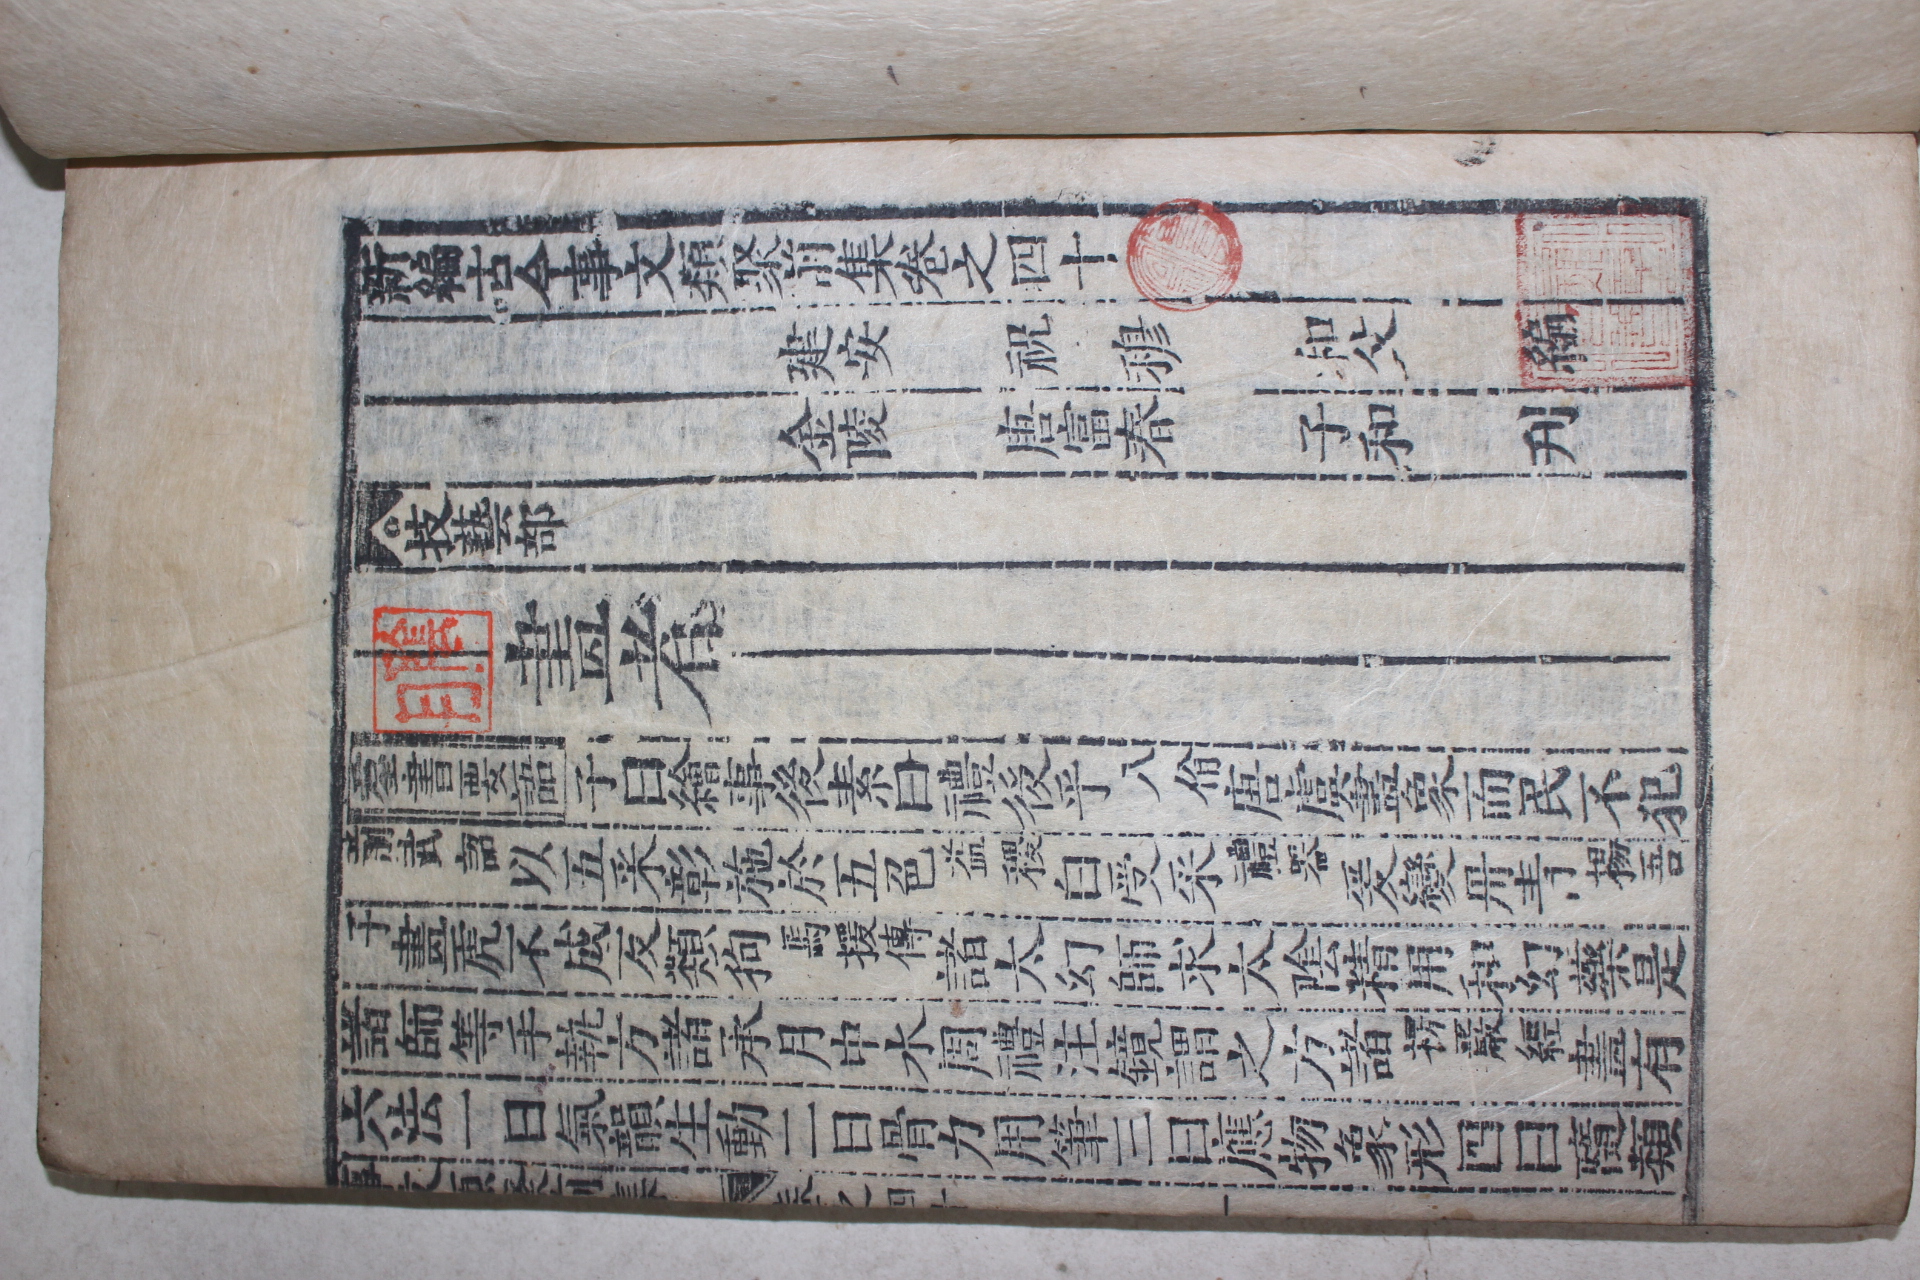 新編古今事文類聚前集卷之四十
建安 祝 穆 和父 編
金陵 唐富春 子和 刊
技藝部
畫者
羣書要語子曰繪事後素曰禮後乎八佾唐虞畫象而民不犯
武詔以五采彰施於五色益稷白受采禮器爰變丹青揚吾
子畫虎不成反類狗馬援傳諸太幻師求太陰精用和幻藥是
諸師等手執方諸承月中水周禮注鏡謂之方諸楞嚴經畫有
六法一曰氣韻生動二曰骨力用筆三曰應物象形四曰隨類
事文類聚前集 卷之四十 一